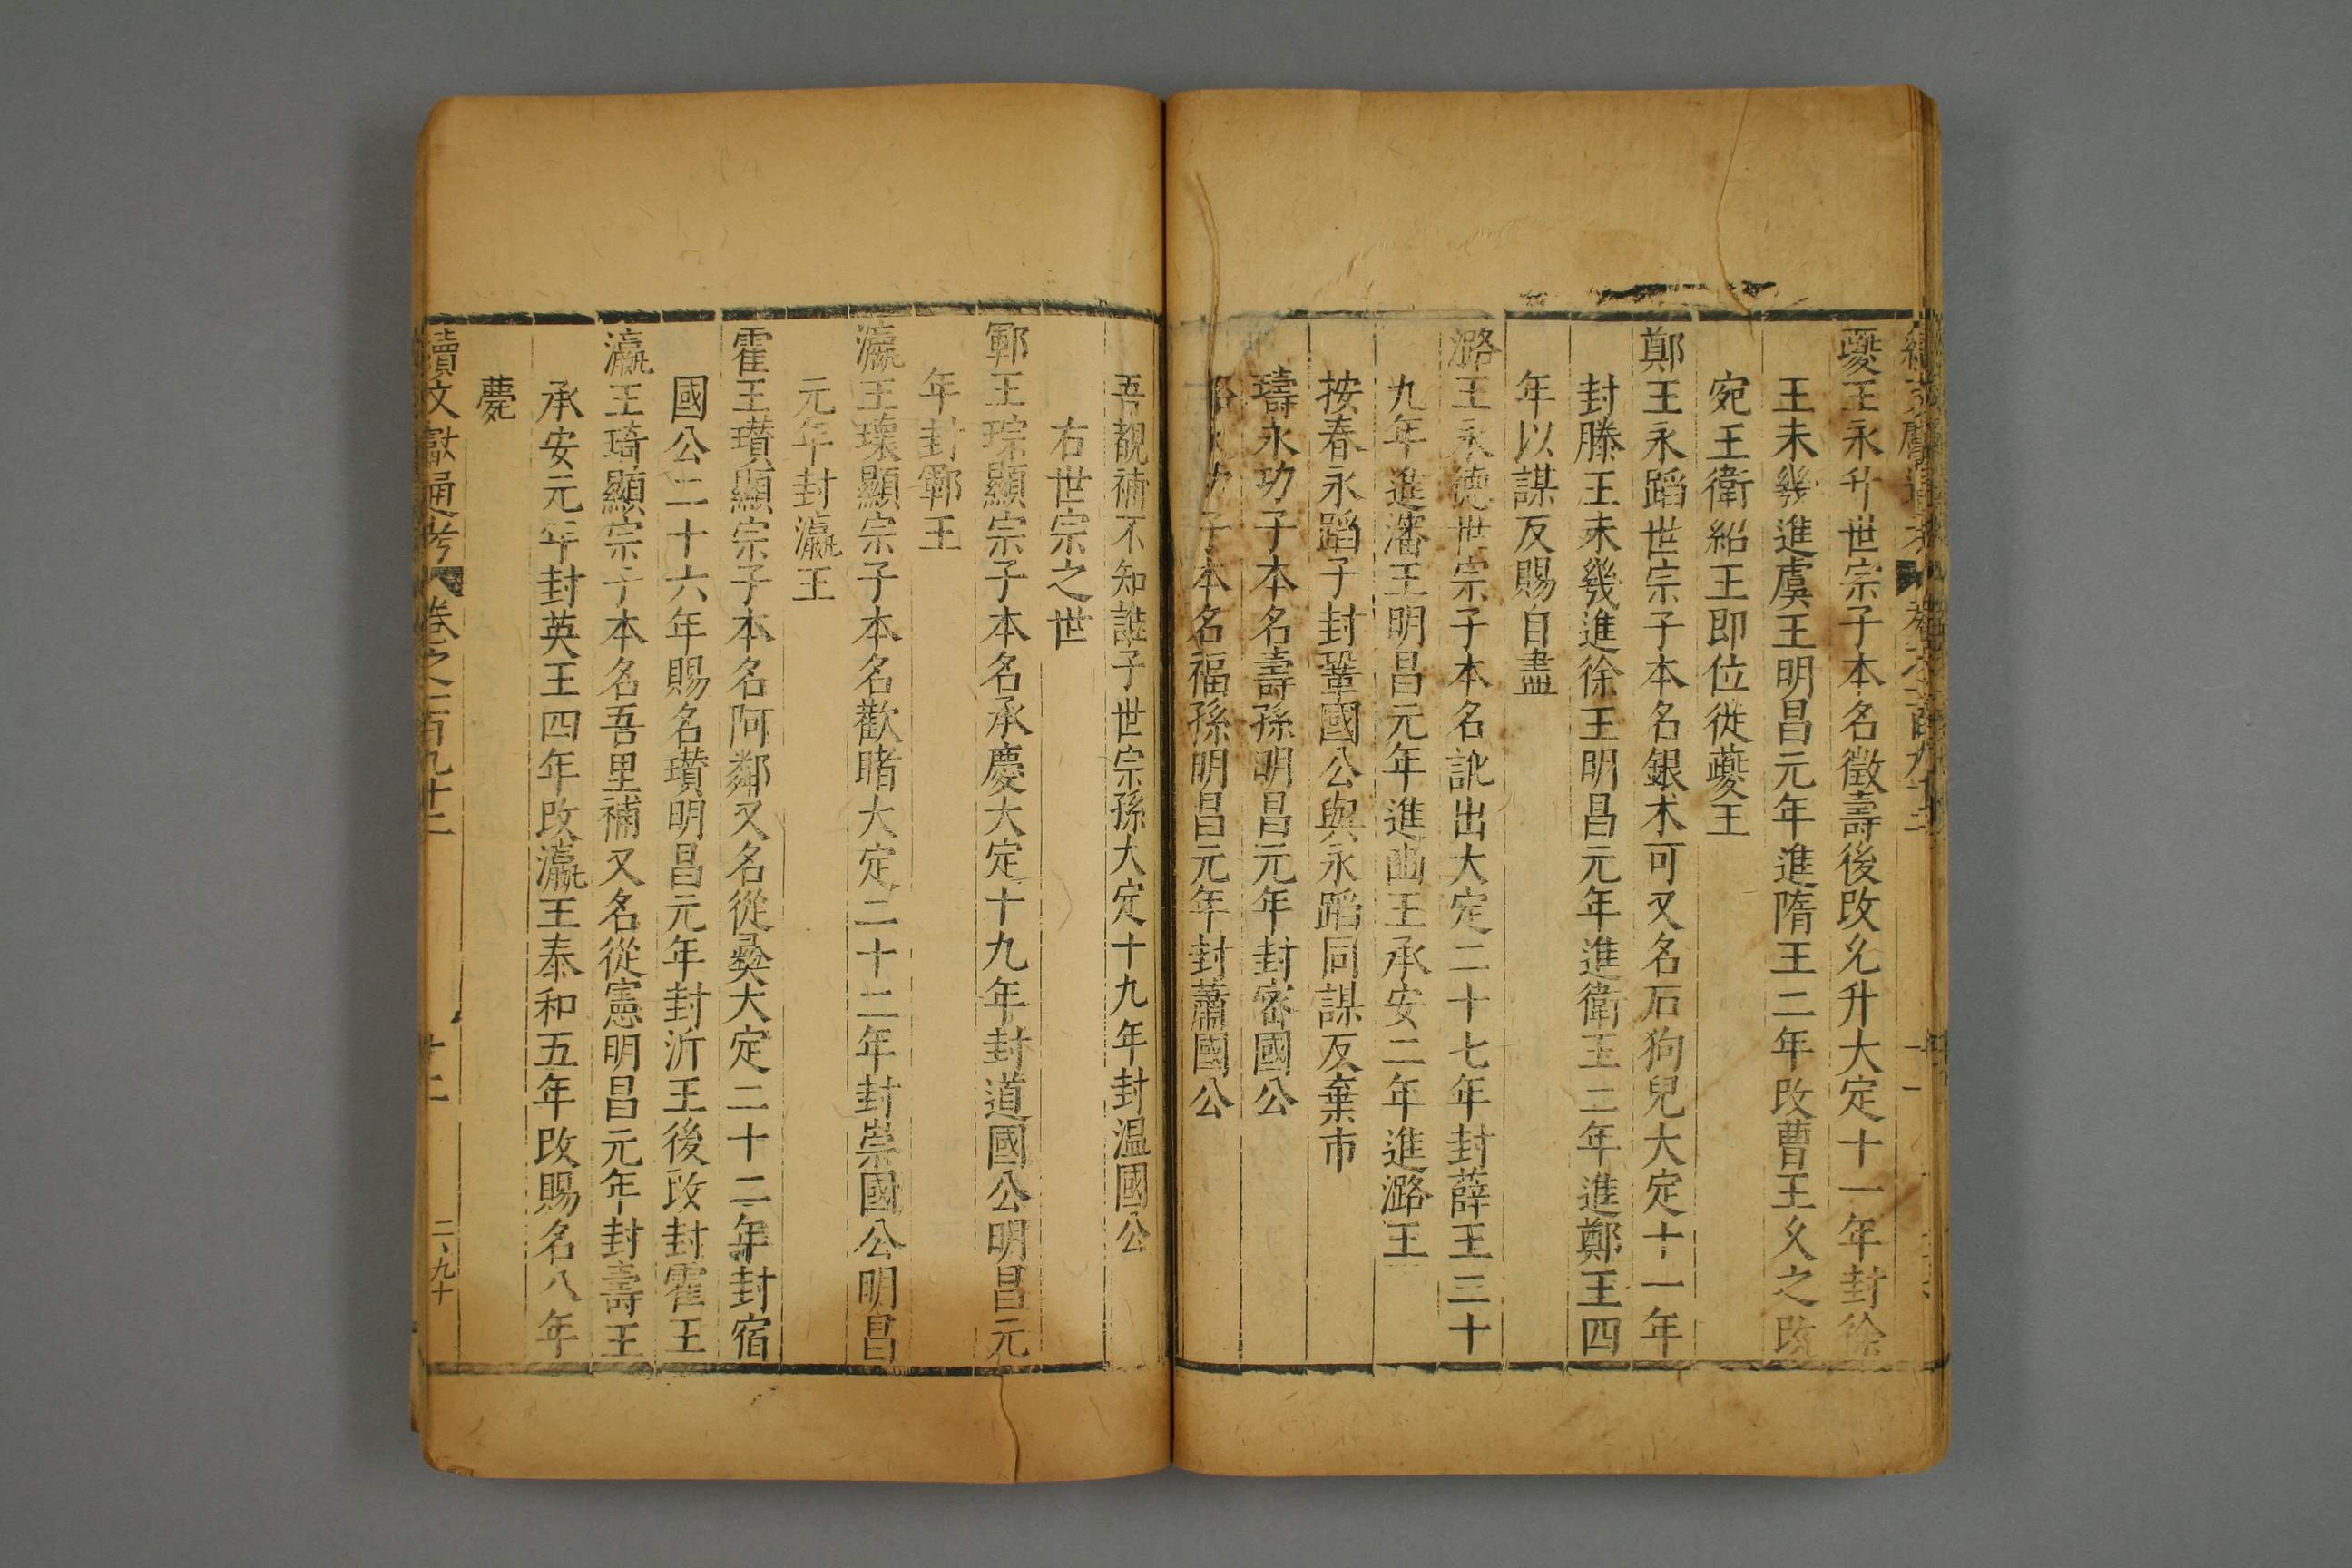 夔王永升世宗子本名徵壽後改允升大定十一年封徐
王未幾進虞王明昌元年進隋王二年改曹王久之改
宛王衛紹王即位從夔王
鄭王永蹈世宗子本名銀术可又名石狗兒大定十一年
封滕王未幾進徐王明昌元年進衛王二年進鄭王四
年以謀反賜自盡
潞王永德世宗子本名訛出大定二十七年封薛王三十
九年進瀋王明昌元年進豳王承安二年進潞王
按春永蹈子封鞏國公與永蹈同謀反棄市
璹永功子本名壽孫明昌元年封密國公
永功子本名福孫明昌元年封蕭國公
吾覩補不知誰子世宗孫大定十九年封温國公
右世宗之世
鄆王琮顯宗子本名承慶大定十九年封道國公明昌元
年封鄆王
瀛王瓌顯宗子本名歡睹大定二十二年封崇國公明昌
元年封瀛王
霍王瓚顯宗子本名阿鄰又名從彝大定二十二年封宿
國公二十六年賜名瓚明昌元年封沂王後改封霍王
瀛王琦顯宗子本名吾里補又名從憲明昌元年封壽王
承安元年封英王四年改瀛王泰和五年改賜名八年
薨
續文獻通考 卷之一百九十二 十二 二、九十